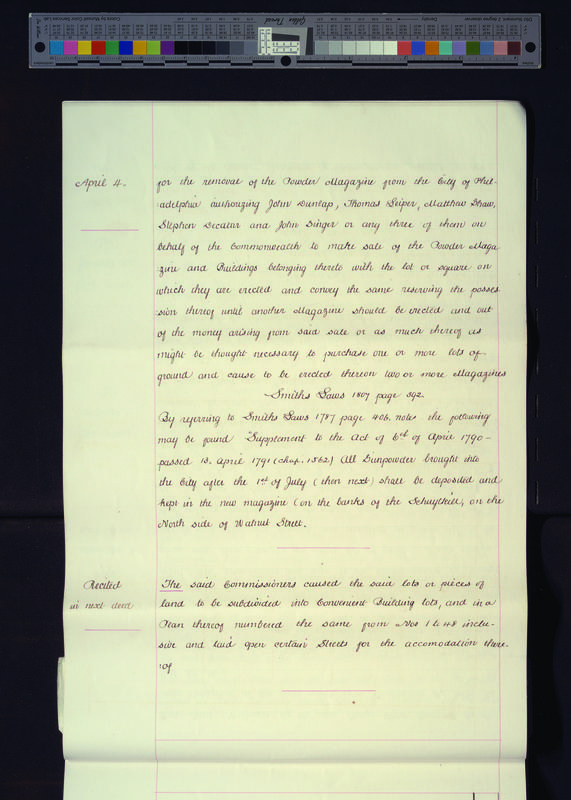 April 4.
for the removal of the Powder Magazine from the City of Phil-
adelphia authorizing John Dunlap, Thomas Leiper, Matthew Shaw,
Stephen Decatur and John Binger or any three of them on
behalf of the Commonwealth to make sale of the Powder Maga
zine and Buildings belonging thereto with the lot or square on
which they are erected and convey the same reserving the posses
sion thereof until another Magazine should be erected and out
of the money arising from said sale or as much thereof as
might be thought necessary to purchase one or more lots of
ground and cause to be erected thereon two or more Magazines
Smiths Laws 1807 page 392.
By referring to Smiths Laws 1787 page 406. note the following
may be found "Supplement to the Act of 6th of April 1790 -
passed 13. April 1791 (chap. 1562) All Gunpowder brought into
the City after the 1st of July (then next) shall be deposited and
kept in the new magazine (on the banks of the Schuylkill, on the
North side of Walnut Street.
Recited
in next deed
The said Commissioners caused the said lots or pieces of
land to be subdivided into Convenient Building lots, and in a
Plan thereof numbered the same from Nos 1 to 48 inclu-
sive and laid open certain Streets for the accomodation there-
of